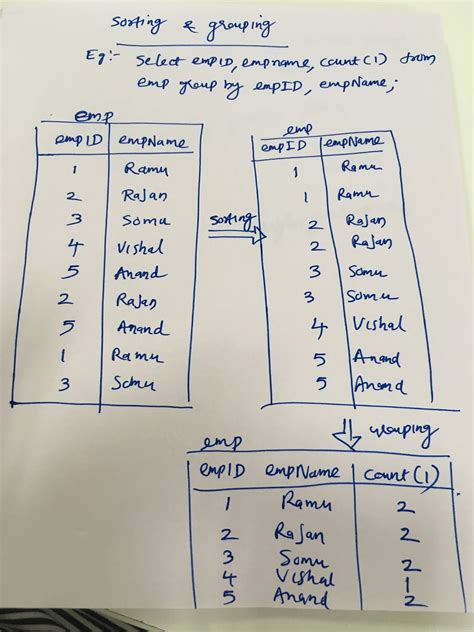 Sorting & grouping
Eg:- Select empID, empname, count(1) from
emp group by empID, empName;
emp
empID empName
1 Ramu
2 Rajan
3 Somu
4 Vishal
5 Anand
2 Rajan
5 Anand
1 Ramu
3 Somu
sorting
emp
empID empName
1 Ramu
1 Ramu
2 Rajan
2 Rajan
3 Somu
3 Somu
4 Vishal
5 Anand
5 Anand
grouping
emp
empID empName count(1)
1 Ramu 2
2 Rajan 2
3 Somu 2
4 Vishal 1
5 Anand 2